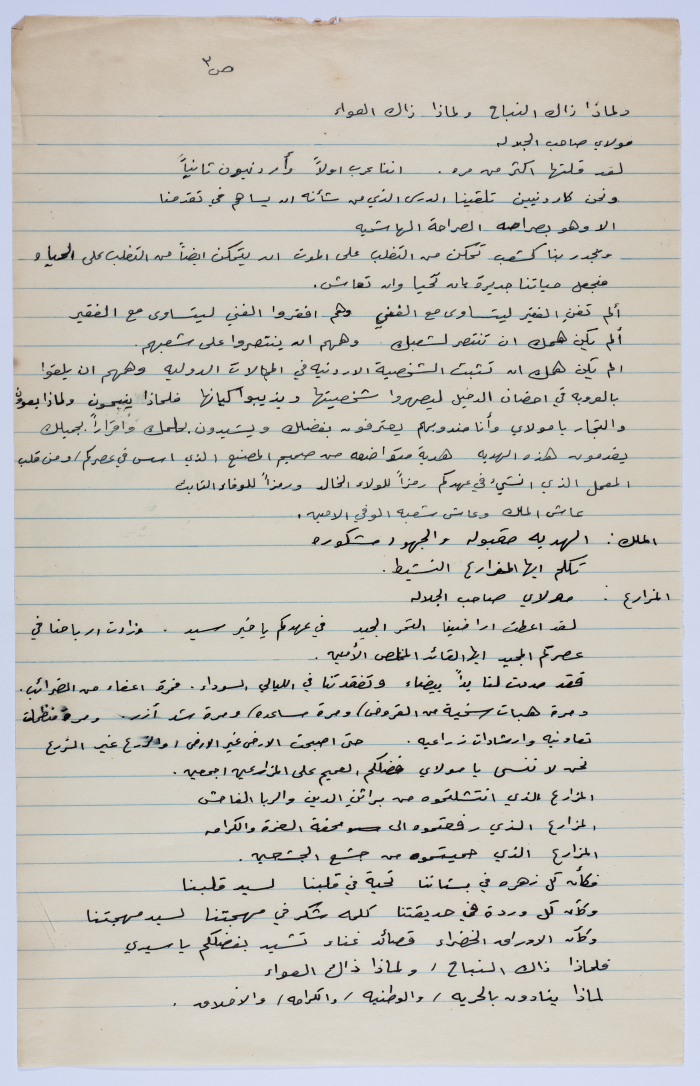 ص٣
ولماذا ذاك النباح ولماذا ذاك العواء
مولاي صاحب الجلاله
لقد قلتها اكثر من مره . اننا عرب اولاً وأردنيون ثانياً
ونحن كاردنيين تلقينا الدرس الذي من شأنه ان يساهم في تقدمنا
الا وهو بصراحه الصراحة الهاشميه
ويجدر بنا كشعب تمكن من التغلب على الموت ان يتمكن ايضاً من التغلب على الحياه
فنجعل حياتنا جديرة بان تحيا وان تعاش .
ألم تغن الفقير ليتساوى مع الغني وهم افقروا الغني ليتساوى مع الفقير
ألم يكن همك ان تنتصر لشعبك وهمهم ان ينتصروا على شعبهم .
الم يكن همك ان تثبت الشخصية الاردنيه في المجالات الدوليه وهمهم ان يلقوا
بالعروبه في احضان الدخيل ليصهروا شخصيتها ويذيبوا كيانها فلماذا ينبحون ولماذا يعوون
والتجار يا مولاي وأنا مندوبهم يعترفون بفضلك ويشيدون بحلمك واقراراً بجميلك
يقدمون هذه الهديه هدية متواضعه من صميم المصنع الذي اسس في عصركم / ومن قلب
المعمل الذي انشيء في عهدكم رمزاً للولاء الخالد ورمزاً للوفاء الثابت
عاش الملك وعاش شعبه الوفي الامين .
الملك : الهديه مقبوله والجهود مشكوره
تكلم ايها المزارع النشيط .
المزارع : مولاي صاحب الجلاله
لقد اعطت اراضينا الثمر الجيد في عهدكم يا خير سيد . وزادت ارباحنا في
عصركم المجيد ايها القائد المخلص الأمين .
فقد مددت لنا يداً بيضاء وتفقدتنا في الليالي السوداء . فمرة اعفاء من الضرائب .
ومرة هبات سخية من القروض / ومرة مساعده / ومرة شد آزر . ومرة منظمات
تعاونيه وارشادات زراعيه . حتى اصبحت الارض غير الارض / والزرع غير الزرع
نحن لا ننسى يا مولاي فضلكم العميم على المزارعين اجمعين .
المزارع الذي انتشلتموه من براثن الدين والربا الفاحش
المزارع الذي رفعتموه الى محفة العزة والكرامه
المزارع الذي حميتموه من جشع الجشعين .
فكأن كل زهره في بستاننا تحية في قلبنا لسيد قلبنا
وكأن كل وردة في حديقتنا كلمه شكر في مهجتنا لسيد مهجتنا
وكأن الاوراق الخضراء قصائد غناء تشيد بفضلكم يا سيدي
فلماذا ذاك النباح / ولماذا ذاك العواء
لماذا ينادون بالحريه / والوطنيه / والكرامه / والاخلاق .